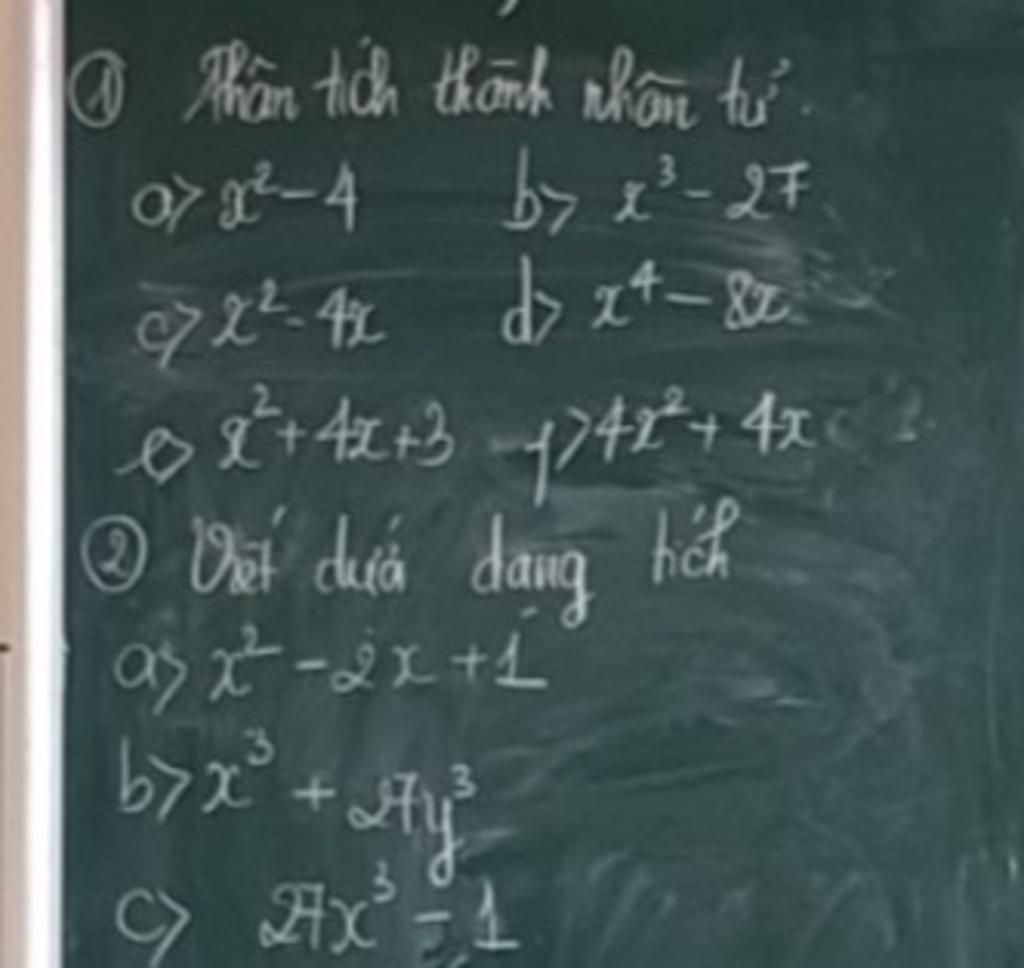 ① Phân tích thành nhân tử.
a> x² - 4 b> x³ - 27
c> x² - 4x d> x⁴ - 8x
e> x² + 4x + 3 f> 4x² + 4x
② Viết dưới dạng tích
a> x² - 2x + 1
b> x³ + 27y³
c> 27x³ - 1